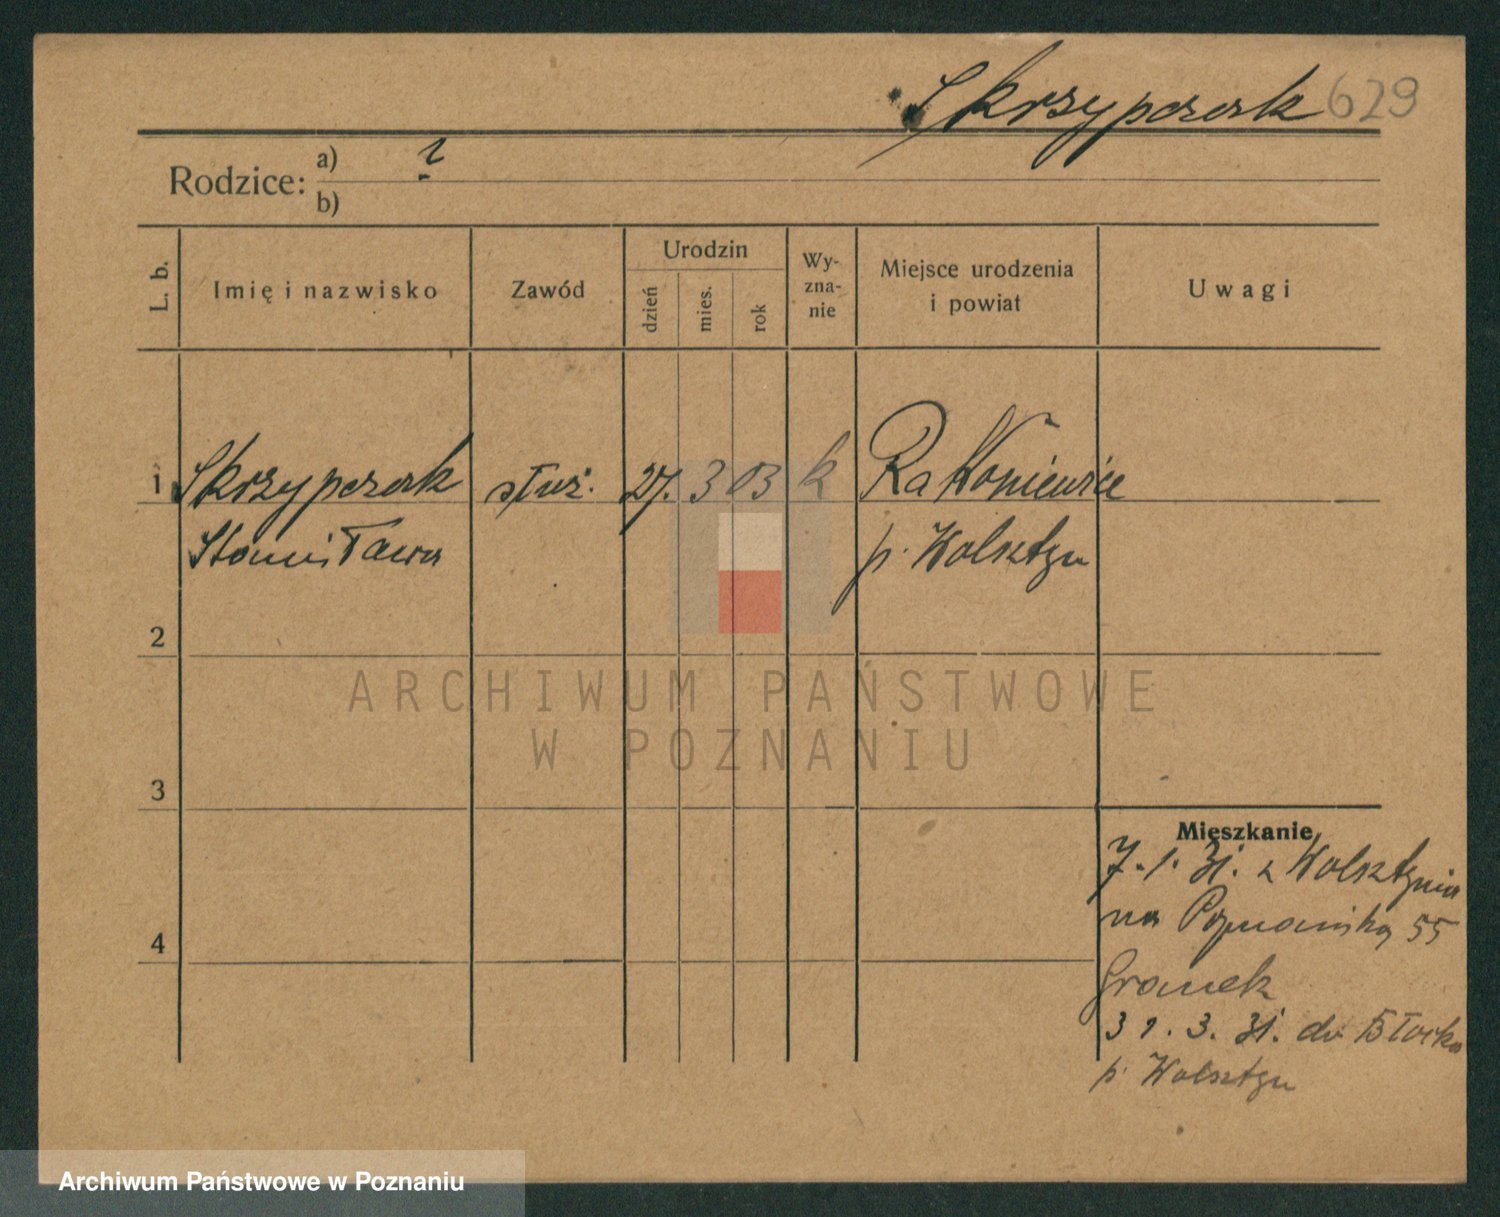 Skrzypczak 629
Rodzice: a) ?
b)
L. b.
Imię i nazwisko
Zawód
Urodzin
dzień
mies.
rok
Wy-
zna-
nie
Miejsce urodzenia
i powiat
Uwagi
1 Skrzypczak służ. 27. 3 03 k Rakoniewice
Stanisława p. Wolsztyn
2
3
4
Mieszkanie
7. 1. 31. z Wolsztynia
na Poznańską 55
31. 3. 31. do
p. Wolsztyn
ARCHIWUM PAŃSTWOWE
W POZNANIU
Archiwum Państwowe w Poznaniu